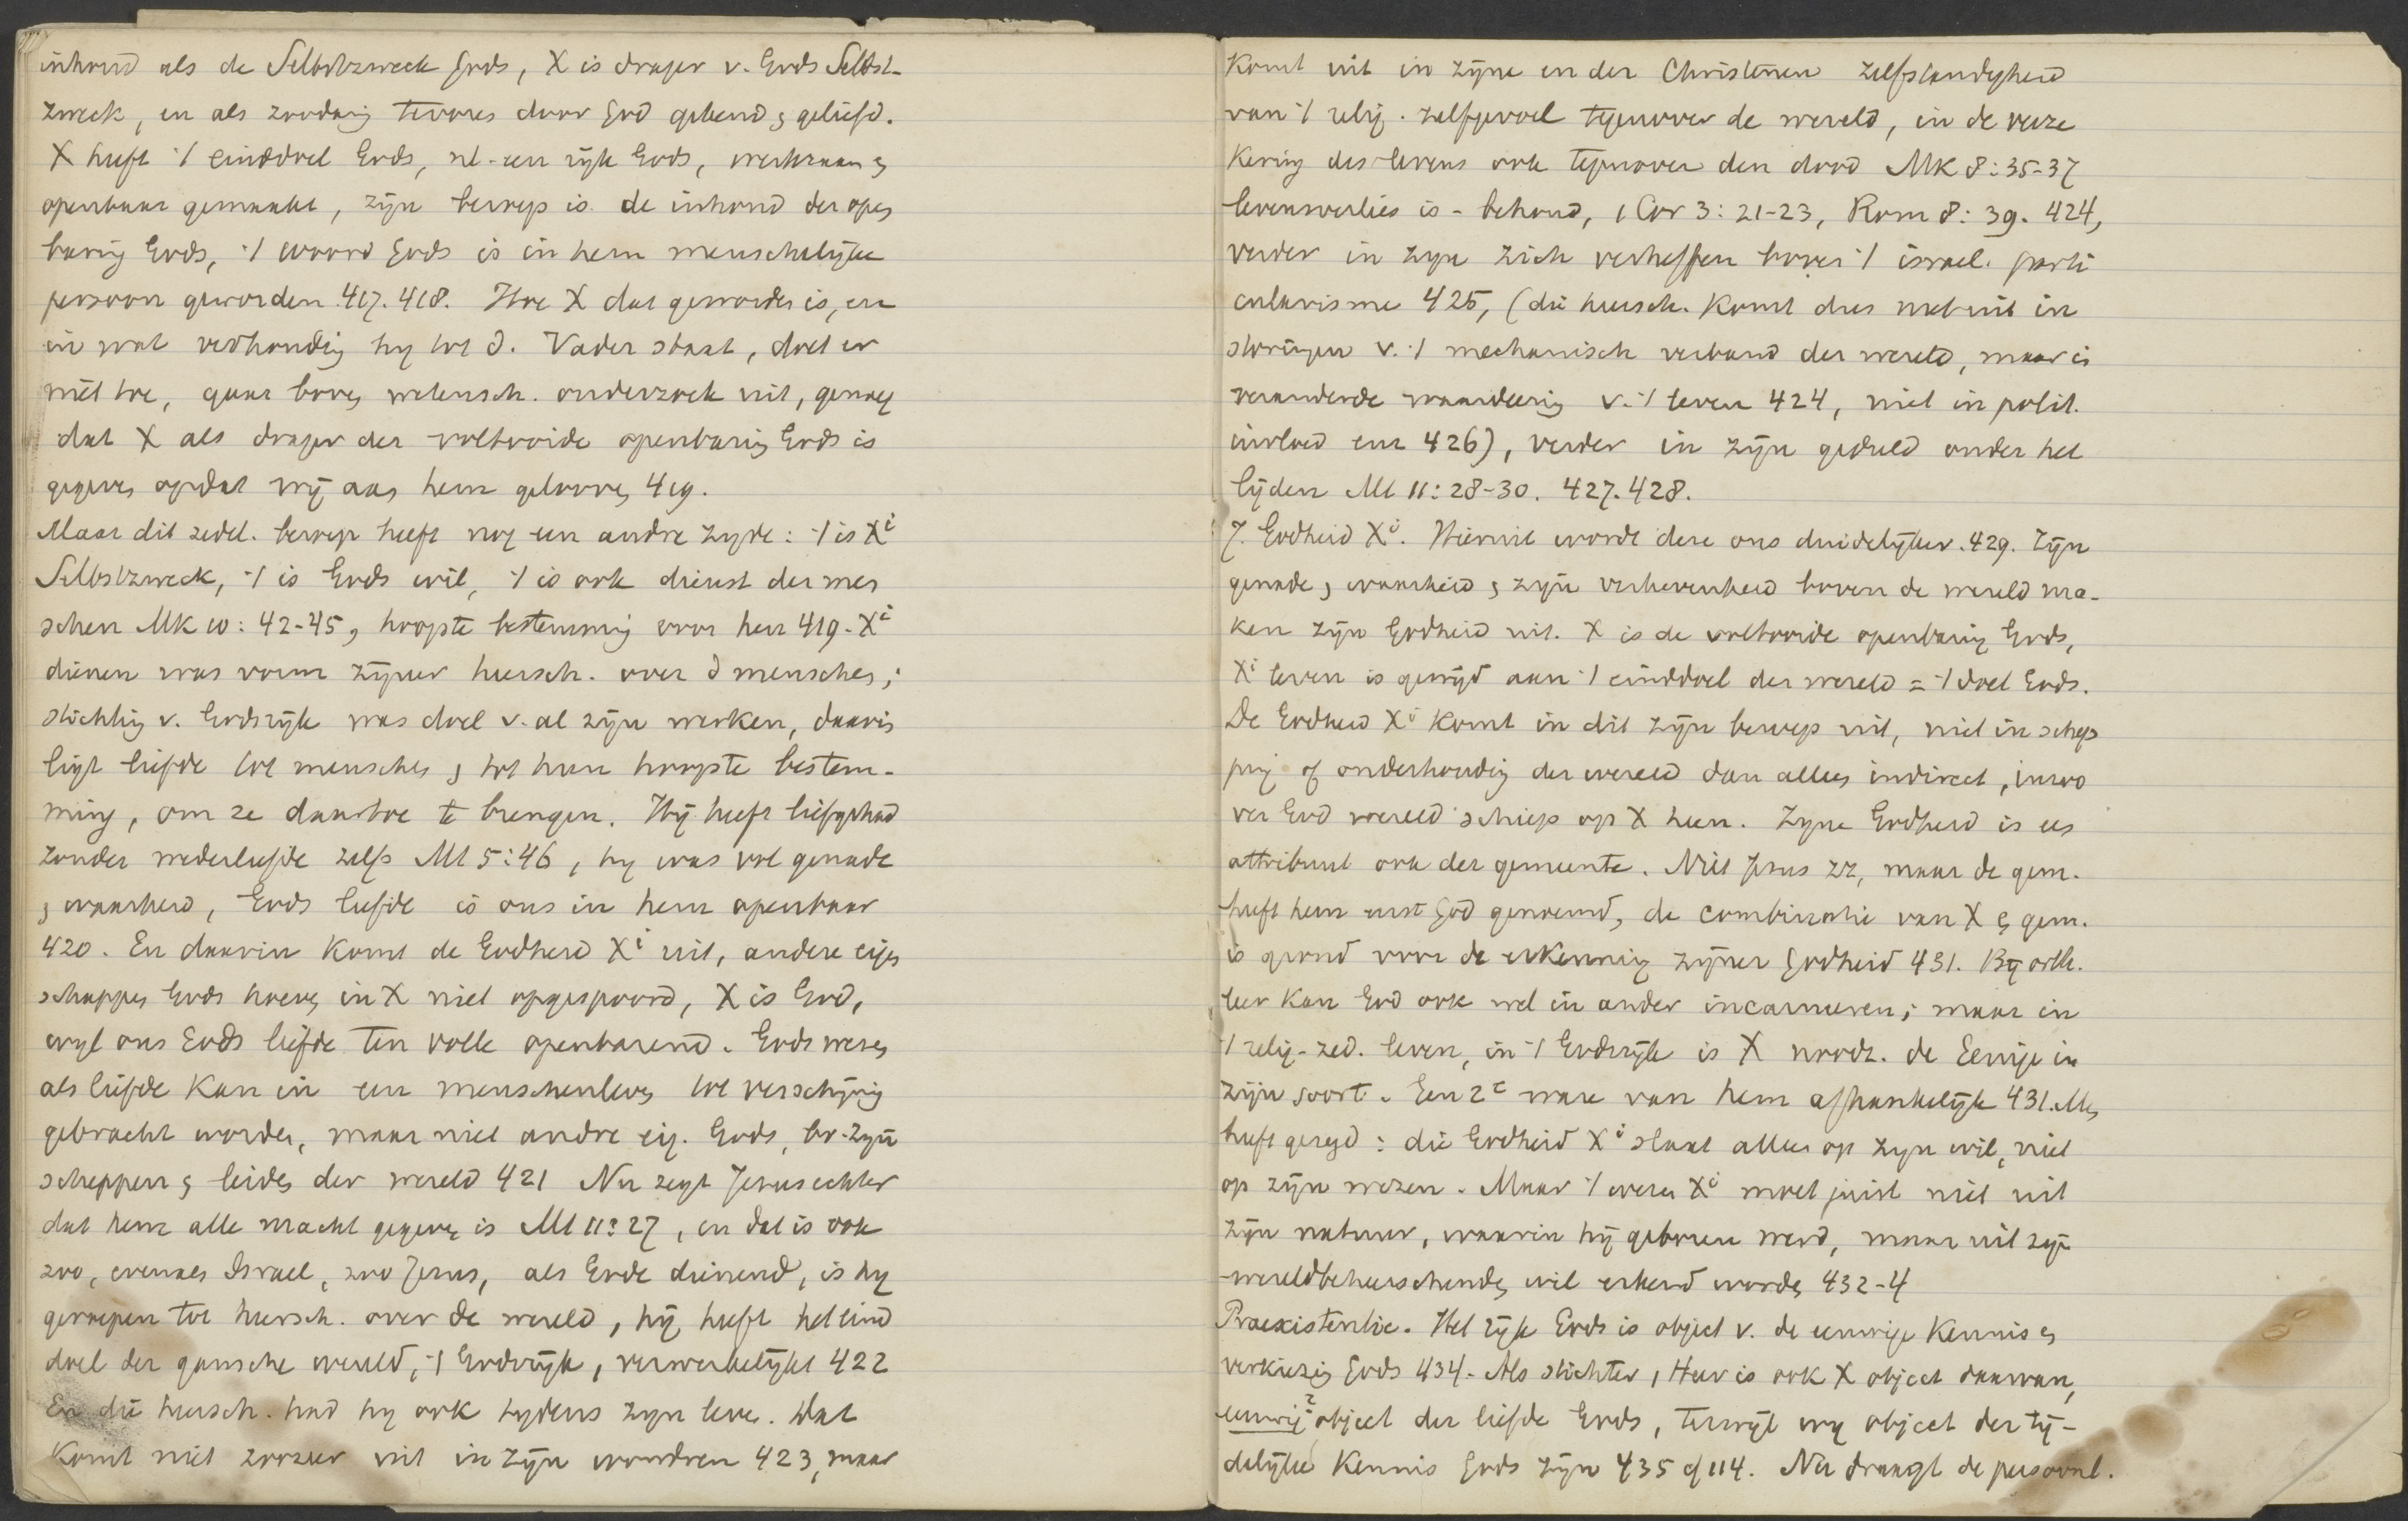 inhoud als de Selbstzweck Gods, X is drager v. Gods Selbst-
zweck, en als zoodanig tevoren door God gekend & geliefd.
X heeft 't einddoel Gods, nl. een rijk Gods, werkzaam &
openbaar gemaakt, zijn beroep is de inhoud der open
baring Gods, 't woord Gods is in hem menschelijke
persoon geworden 417. 418. Hoe X dat geworden is, en
in wat verhouding hij tot d. Vader staat, doet er
niet toe, gaat boven wetensch. onderzoek uit, genoeg
dat X als drager der voltooide openbaring Gods is
gegeven opdat wij aan hem gelooven 419.
Maar dit zedel. beroep heeft nog een andre zijde: 't is Xi
Selbstzweck, 't is Gods wil, 't is ook dienst der men
schen Mk 10: 42-45, hoogste bestemming voor hen 419. Xi
dienen was vorm zijner heersch. over d menschen;
stichting v. Godsrijk was doel v. al zijn werken, daarin
ligt liefde tot menschen & tot hun hoogste bestem-
ming, om ze daartoe te brengen. Hij heeft liefgehad
zonder wederliefde zelfs Mt 5:46, hij was vol genade
& waarheid, Gods liefde is ons in hem openbaar
420. En daarin komt de Godheid Xi uit, andere eigen
schappen Gods hoeven in X niet opgespoord, X is God,
wijl ons Gods liefde ten volle openbarend. Gods wezen
als liefde kan in een menschenleven tot verschijning
gebracht worden, maar niet andre eig. Gods, bv. zijn
scheppen & leiden der wereld 421 Nu zegt Jezus echter
dat hem alle macht gegeven is Mt 11:27, en dat is ook
zoo, evenals Israel, zoo Jezus, als Gode dienend, is hij
geroepen tot heersch. over de wereld, hij heeft het eind
doel der gansche wereld, 't Godsrijk, verwerkelijkt 422
En die heersch. had hij ook tijdens zijn leven. Dat
komt niet zoozeer uit in zijn wondren 423, maar
komt uit in zijne en der Christenen zelfstandigheid
van 't relig. zelfgevoel tegenover de wereld, in de verze
kering des levens ook tegenover den dood Mk 8:35-37
levensverlies is - behoud, 1 Cor 3: 21-23, Rom 8: 39. 424,
verder in zijn zich verheffen boven 't israel. parti
cularisme 425, (die heersch. komt dus niet uit in
storingen v. 't mechanisch verband der wereld, maar is
veranderde waardeering v. 't leven 424, niet in polit.
invloed enz 426), verder in zijn geduld onder het
lijden Mt 11: 28-30. 427. 428.
7. Godheid Xi. Hieruit wordt deze ons duidelijker. 429. Zijn
genade & waarheid & zijn verhevenheid boven de wereld ma-
ken zijn Godheid uit. X is de voltooide openbaring Gods,
Xi leven is gewijd aan 't einddoel der wereld = 't doel Gods.
De Godheid Xi komt in dit zijn beroep uit, niet in schep
ping of onderhouding der wereld dan alleen indirect, inzoo
ver God wereld schiep op X heen. Zijne Godheid is een
attribuut ook der gemeente. Niet Jezus zz, maar de gem.
heeft hem eerst God genoemd, de combinatie van X & gem.
is grond voor de erkenning zijner Godheid 431. Bij orth.
leer kan God ook wel in ander incarneeren; maar in
't relig-zed. leven, in 't Godsrijk is X noodz. de Eenige in
zijn soort. Een 2e ware van hem afhankelijk 431. Men
heeft gezegd: die Godheid Xi slaat alleen op zijn wil, niet
op zijn wezen. Maar 't wezen Xi moet juist niet uit
zijn natuur, waarin hij geboren werd, maar uit zijn
wereldbeheerschende wil erkend worden 432-4
Praeexistentie. Het rijk Gods is object v. de eeuwige kennis en
verkiezing Gods 434. Als stichter, Heer is ook X object daarvan,
eeuwig? object der liefde Gods, terwijl wij object der tij-
delijke kennis Gods zijn 435 cf 114. Nu draagt de persoonl.